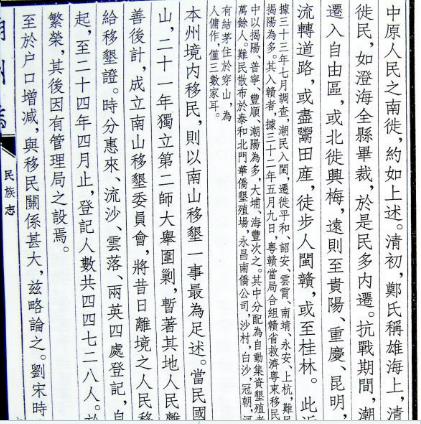 中原人民之南徙，約如上述。清初，鄭氏稱雄海上，清
徙民，如澄海全縣畢裁，於是民多內遷。抗戰期間，潮
遷入自由區，或北徙興梅，遠則至貴陽、重慶、昆明，
流轉道路，或盡鬻田產，徒步入閩贛，或至桂林。此近
據三十三年七月調查，潮民入閩，遷徙平和、詔安、雲霄、南靖、永安、上杭，難民
揭陽為多。其入贛者，據三十二年五月九日，粵贛當局合組贛省救濟粵東移民
中以揭陽、普寧、豐順、潮陽為多，大埔、海豐次之。其中分配為自動集資墾殖者
萬餘人。難民散布於泰和北門華僑墾殖場，永昌南僑公司，沙村，白沙，冠朝，
有結茅住於穿山，為
人傭作，僅三數家耳。
本州境內移民，則以南山移墾一事最為足述。當民國
山，二十一年獨立第二師大舉圍剿，暫著其地人民離
善後計，成立南山移墾委員會，將昔日離境之人民移
給移墾證。時分惠來、流沙、雲落、兩英四處登記，自
起，至二十四年四月止，登記人數共四四七二八人。於
繁榮，其後因有管理局之設焉。
至於户口增減，與移民關係甚大，兹略論之。劉宋時
民族志